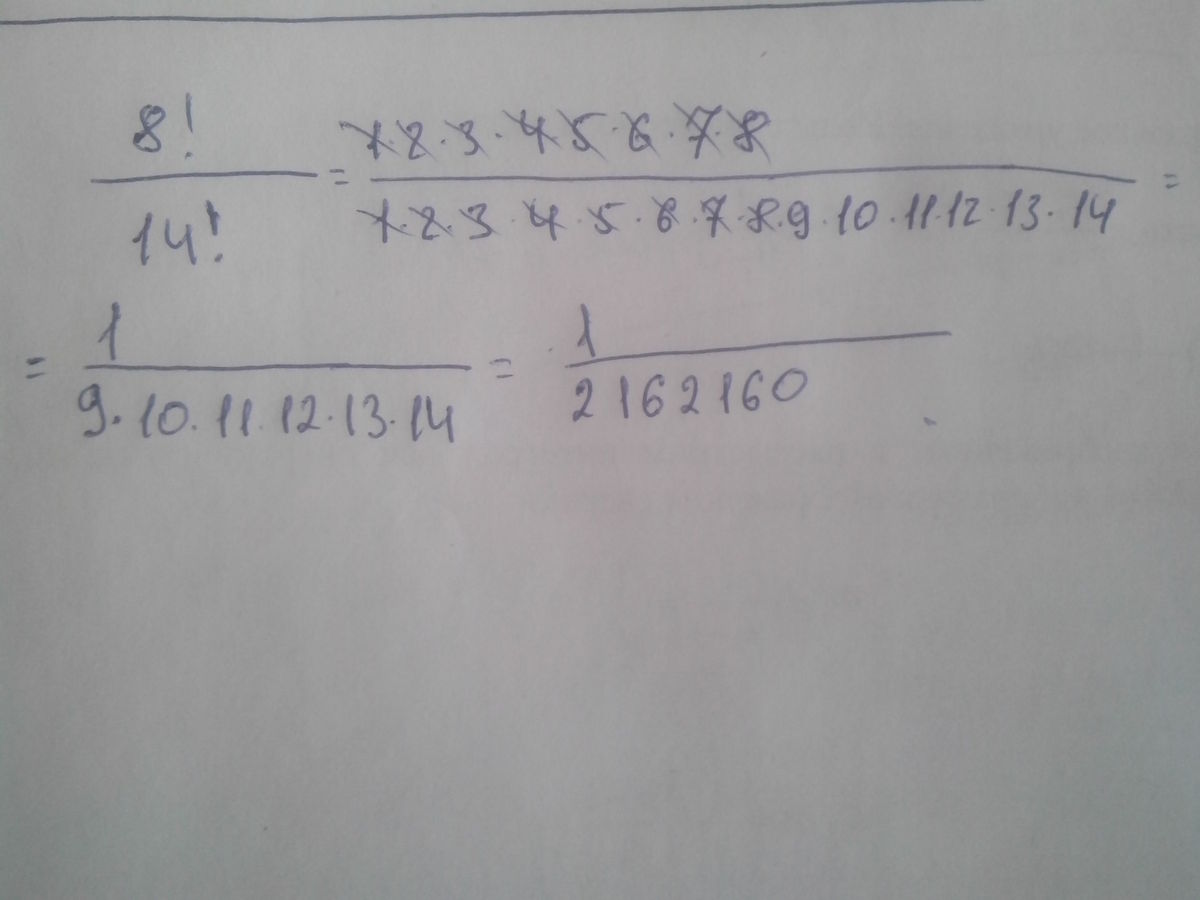 8!/14! = 1·2·3·4·5·6·7·8/1·2·3·4·5·6·7·8·9·10·11·12·13·14 =
= 1/9·10·11·12·13·14 = 1/2162160